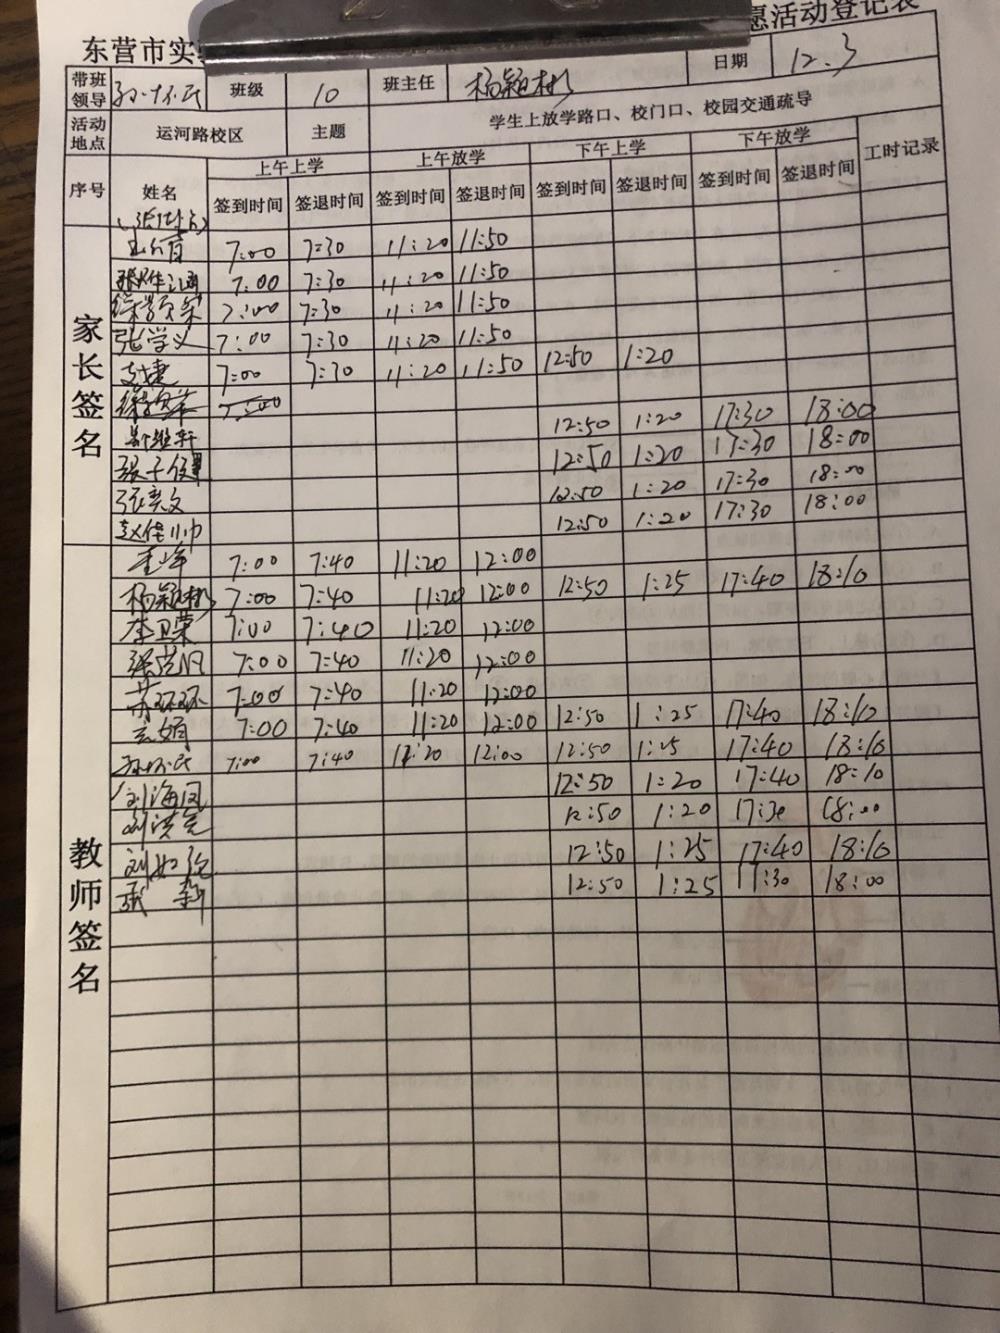 东营市实 愿活动登记表
带班领导 孙怀民 班级 10 班主任 杨颖彬 日期 12.3
活动地点 运河路校区 主题 学生上放学路口、校门口、校园交通疏导
序号 姓名 上午上学 上午放学 下午上学 下午放学 工时记录
签到时间 签退时间 签到时间 签退时间 签到时间 签退时间 签到时间 签退时间
家长签名
7:00 7:30 11:20 11:50
7:00 7:30 11:20 11:50
7:00 7:30 11:20 11:50
张学义 7:00 7:30 11:20 11:50
7:00 7:30 11:20 11:50 12:50 1:20
7:00
12:50 1:20 17:30 18:00
12:50 1:20 17:30 18:00
张奕文 12:50 1:20 17:30 18:00
赵佳帅 12:50 1:20 17:30 18:00
教师签名
7:00 7:40 11:20 12:00
杨颖彬 7:00 7:40 11:20 12:00 12:50 1:25 17:40 18:10
李卫荣 7:00 7:40 11:20 12:00
7:00 7:40 11:20 12:00
苏环环 7:00 7:40 11:20 12:00
7:00 7:40 11:20 12:00 12:50 1:25 17:40 18:10
孙怀民 7:00 7:40 11:20 12:00 12:50 1:25 17:40 18:10
刘海凤 12:50 1:20 17:40 18:10
刘洪亮 12:50 1:20 17:30 18:00
12:50 1:25 17:40 18:10
12:50 1:25 17:30 18:00